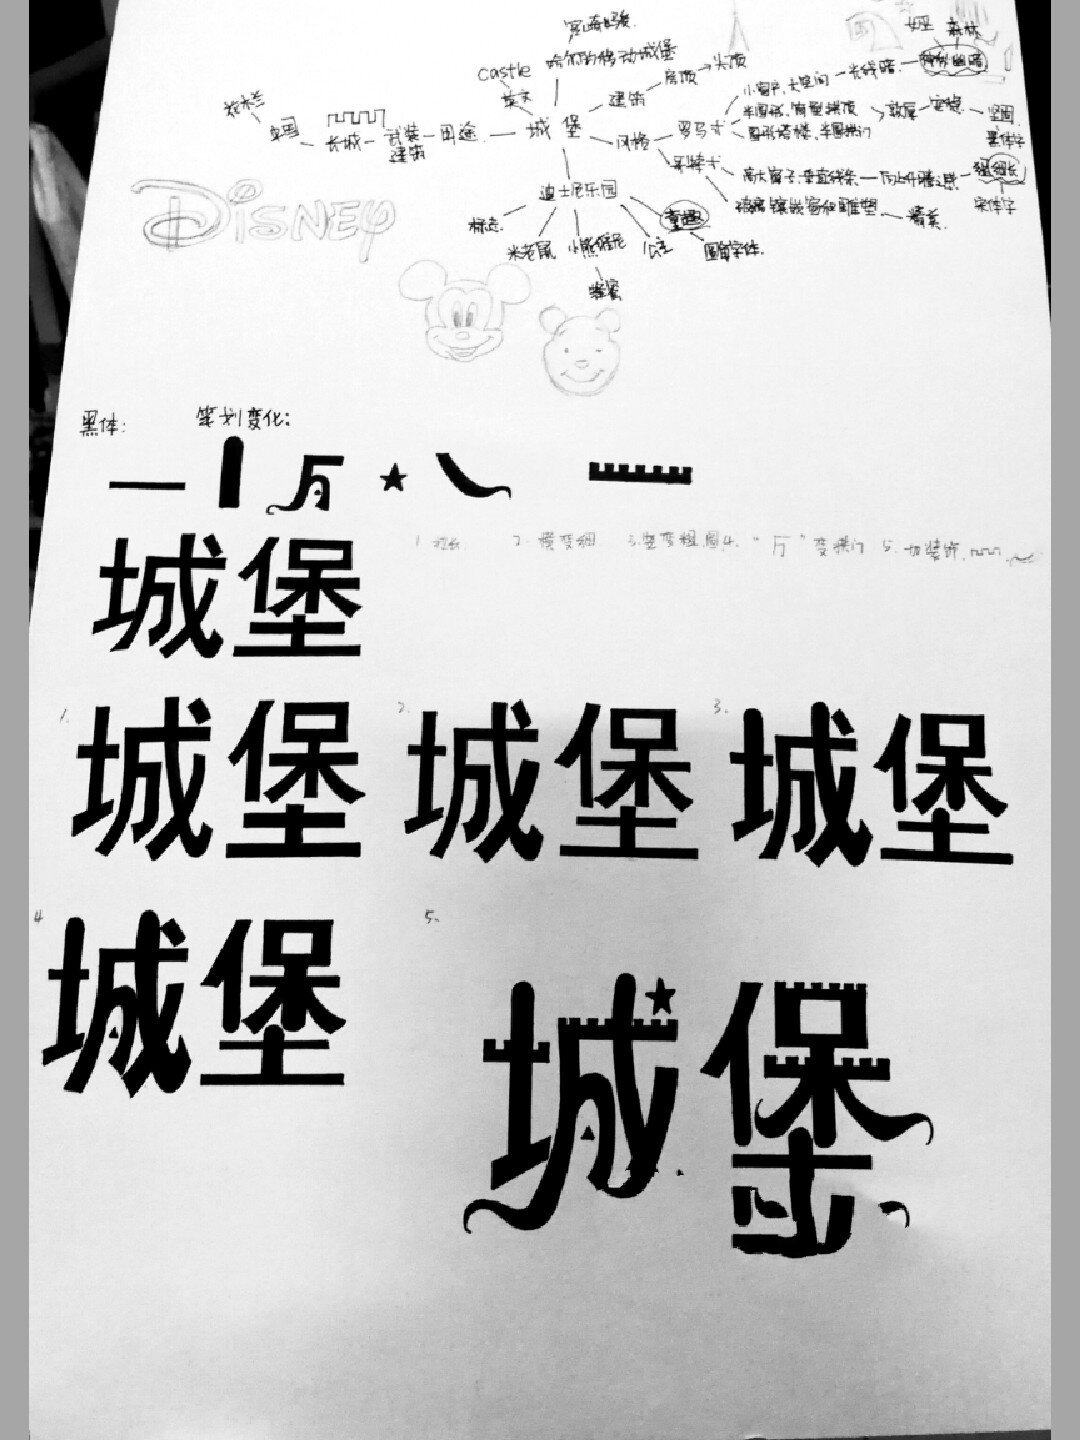 宫崎骏
castle 哈尔的移动城堡
英文
城堡
建筑
房顶
尖顶
用途
武装
建筑
长城
中国
风格
罗马式
小窗户、大空间
光线暗
半圆形
圆形塔楼、半圆拱门
敦厚
安稳
坚固
黑体字
哥特式
高大窗子、垂直线条
向上升腾之感
细长
宋体字
玻璃镶嵌窗和雕塑
精美
女巫
森林
迪士尼乐园
标志
米老鼠
小熊维尼
蜂蜜
公主
童趣
圆角字体
DISNEY
黑体:
笔划变化:
1. 拉长 2. 横变细 3. 竖变粗、圆 4. "万"变拱门 5. 加装饰
城堡
1. 城堡
2. 城堡
3. 城堡
4 城堡
5. 城堡